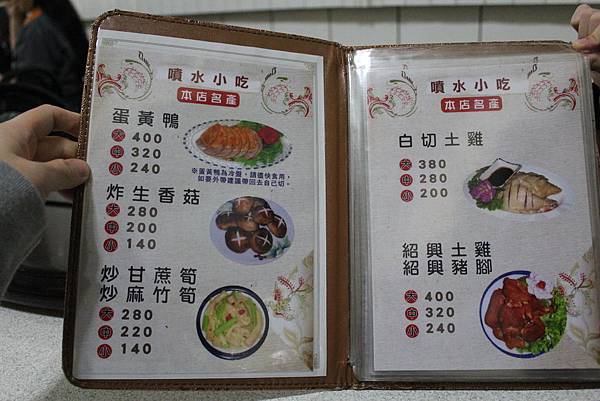 噴水小吃
本店名產
蛋黃鴨
大 400
中 320
小 240
※蛋黃鴨為冷盤，請儘快食用，
如要外帶建議帶回去自己切。
炸生香菇
大 280
中 200
小 140
炒甘蔗筍
炒麻竹筍
大 280
中 220
小 140
噴水小吃
本店名產
白切土雞
大 380
中 280
小 200
紹興土雞
紹興豬腳
大 400
中 320
小 240